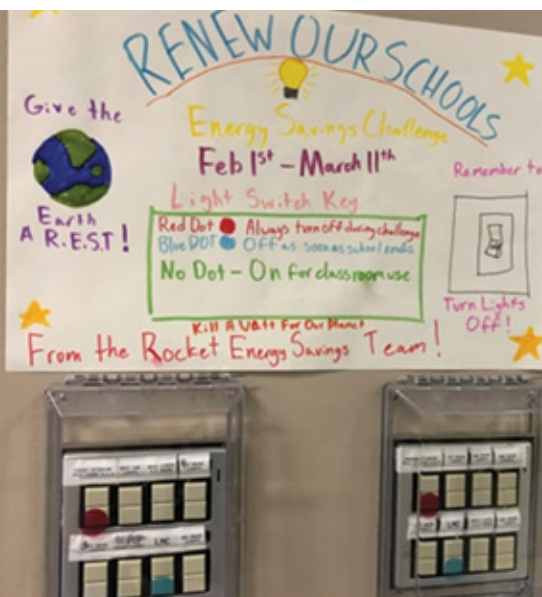 RENEW OUR SCHOOLS
Give the
Earth
A R.E.S.T!
Energy Savings Challenge
Feb 1st – March 11th
Light Switch Key
Red Dot Always turn off during challenge
Blue DOT Off as soon as school ends
No Dot – On for classroom use
Remember to
Turn Lights
Off!
Kill A Watt For Our Planet
From the Rocket Energy Savings Team!
LMC
LMC